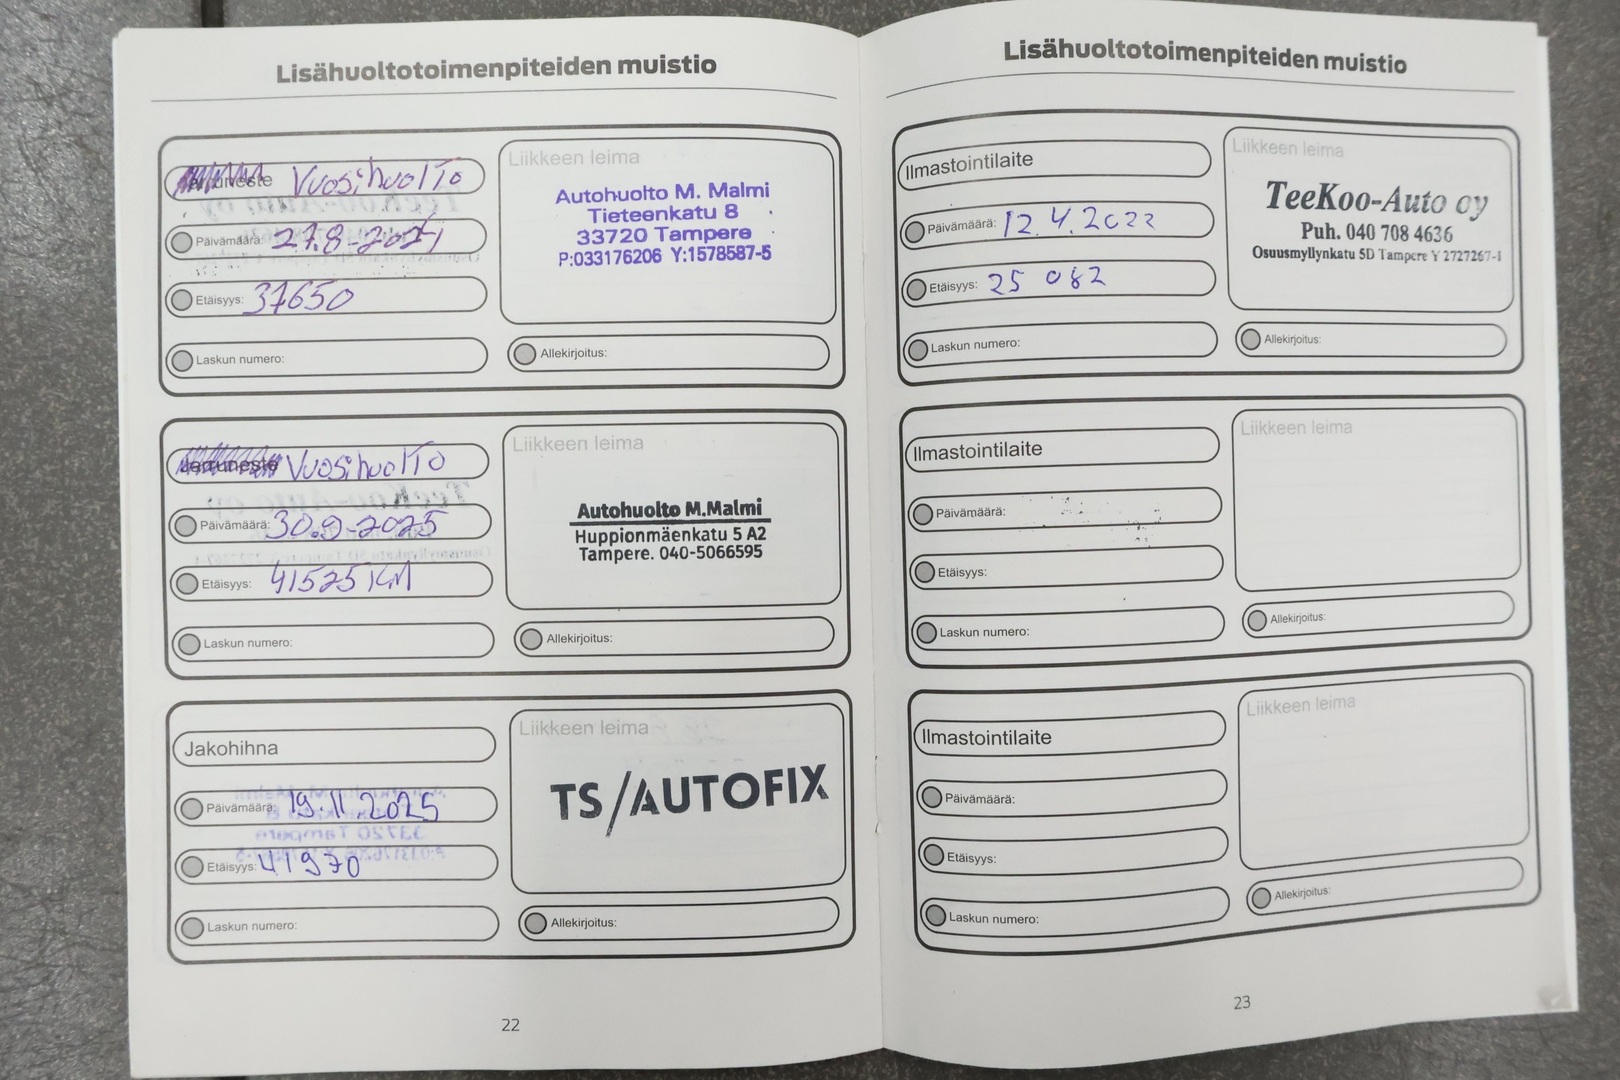 Lisähuoltotoimenpiteiden muistio
Vuosihuolto
Päivämäärä: 27.8-2024
Etäisyys: 37650
Laskun numero:
Liikkeen leima
Autohuolto M. Malmi
Tieteenkatu 8
33720 Tampere
P:033176206 Y:1578587-5
Allekirjoitus:
Jarruneste Vuosihuolto
Päivämäärä: 30.9-2025
Etäisyys: 41525 KM
Laskun numero:
Liikkeen leima
Autohuolto M.Malmi
Huppionmäenkatu 5 A2
Tampere. 040-5066595
Allekirjoitus:
Jakohihna
Päivämäärä: 19.11.2025
Etäisyys: 41970
Laskun numero:
Liikkeen leima
TS/AUTOFIX
Allekirjoitus:
22
Lisähuoltotoimenpiteiden muistio
Ilmastointilaite
Päivämäärä: 12.4.2022
Etäisyys: 25 082
Laskun numero:
Liikkeen leima
TeeKoo-Auto oy
Puh. 040 708 4636
Osuusmyllynkatu 5D Tampere Y 2727267-1
Allekirjoitus:
Ilmastointilaite
Päivämäärä:
Etäisyys:
Laskun numero:
Liikkeen leima
Allekirjoitus:
Ilmastointilaite
Päivämäärä:
Etäisyys:
Laskun numero:
Liikkeen leima
Allekirjoitus:
23